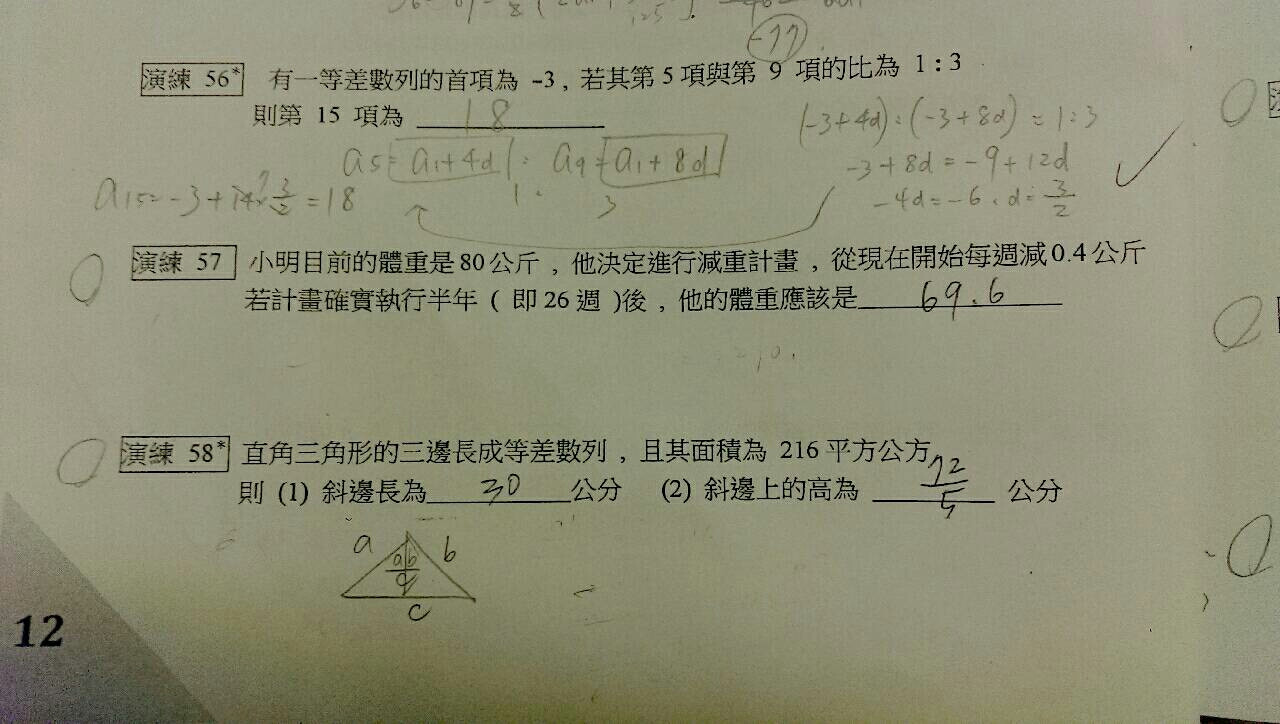 -77
演練 56* 有一等差數列的首項為 -3 , 若其第 5 項與第 9 項的比為 1 : 3
則第 15 項為 18
(-3+4d) : (-3+8d) = 1:3
a5= a1+4d : a9= a1+8d
-3+8d = -9+12d
1 : 3
-4d=-6, d=3/2
a15=-3+14×3/2=18
演練 57 小明目前的體重是 80 公斤 , 他決定進行減重計畫 , 從現在開始每週減 0.4 公斤
若計畫確實執行半年 ( 即 26 週 )後 , 他的體重應該是 69.6
演練 58* 直角三角形的三邊長成等差數列 , 且其面積為 216 平方公方
則 (1) 斜邊長為 30 公分 (2) 斜邊上的高為 72/5 公分
a b
c
12